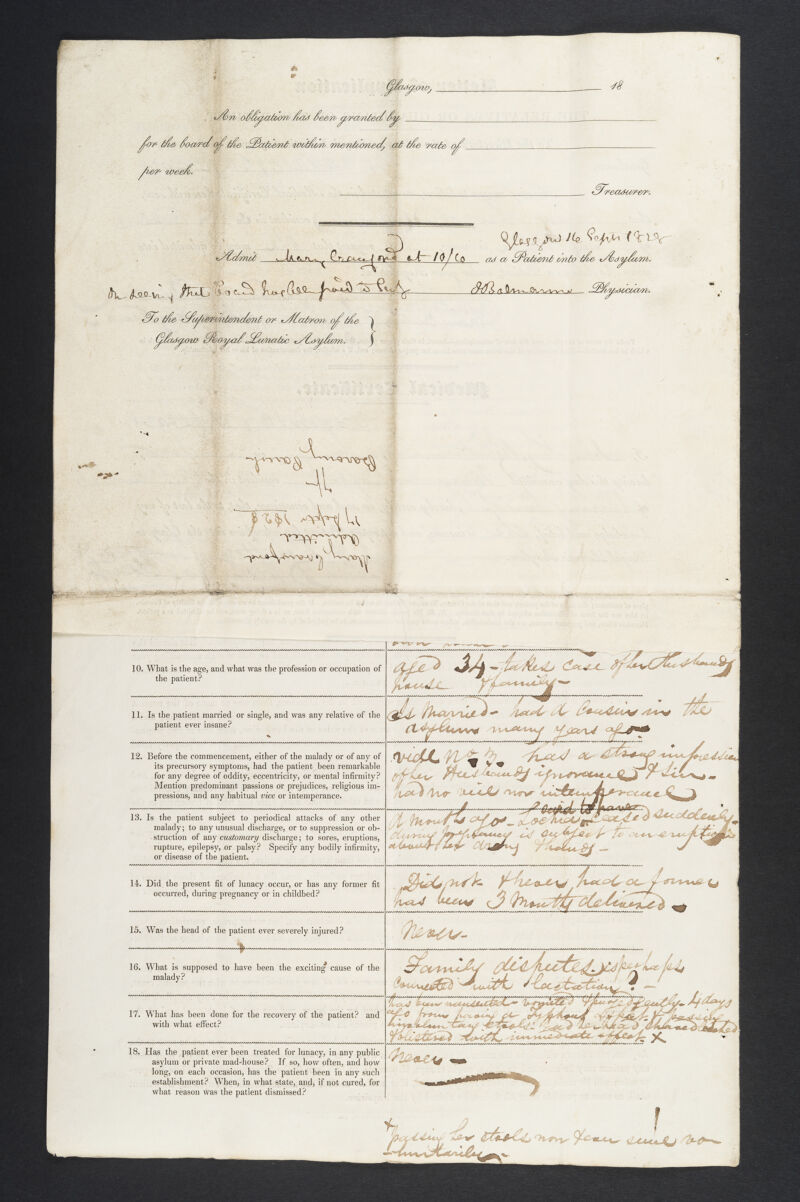 Glasgow, 18
An obligation has been granted by
for the board of the Patient within mentioned, at the rate of
per week.
Treasurer.
Glasgow 16 Septr 1828
Admit Mary Crawford at 10/6 as a Patient into the Asylum.
on seeing that Board has been paid Physician.
To the Superintendent or Matron of the
Glasgow Royal Lunatic Asylum.
Mary Crawford
Admitted
17 Septr 1828
Barony Parish
10. What is the age, and what was the profession or occupation of
the patient?
aged 34 - takes care of her Husbands
house & family -
11. Is the patient married or single, and was any relative of the
patient ever insane?
Is Married - had a Cousin in the
asylum many years ago
12. Before the commencement, either of the malady or of any of
its precursory symptoms, had the patient been remarkable
for any degree of oddity, eccentricity, or mental infirmity?
Mention predominant passions or prejudices, religious im-
pressions, and any habitual vice or intemperance.
vide No 3. has a strong impression
of her Husbands ignorance & sin -
had no vice nor intemperance
13. Is the patient subject to periodical attacks of any other
malady; to any unusual discharge, or to suppression or ob-
struction of any customary discharge; to sores, eruptions,
rupture, epilepsy, or palsy? Specify any bodily infirmity,
or disease of the patient.
said to have
A Month ago - Lochia ceased suddenly -
during pregnancy is subject to an eruption
about her
14. Did the present fit of lunacy occur, or has any former fit
occurred, during pregnancy or in childbed?
Did not & never had a former
has been 3 Months delivered
15. Was the head of the patient ever severely injured?
Never -
16. What is supposed to have been the exciting cause of the
malady?
Family disputes. is perhaps
connected with lactation? -
17. What has been done for the recovery of the patient? and
with what effect?
has been vomited & purged 4 days
ago from having a
involuntary stools. had her head shaved
blistered with immediate effect - x
18. Has the patient ever been treated for lunacy, in any public
asylum or private mad-house? If so, how often, and how
long, on each occasion, has the patient been in any such
establishment? When, in what state, and, if not cured, for
what reason was the patient dismissed?
Never -
x passing her stools now & ever since vo-
-luntarily -